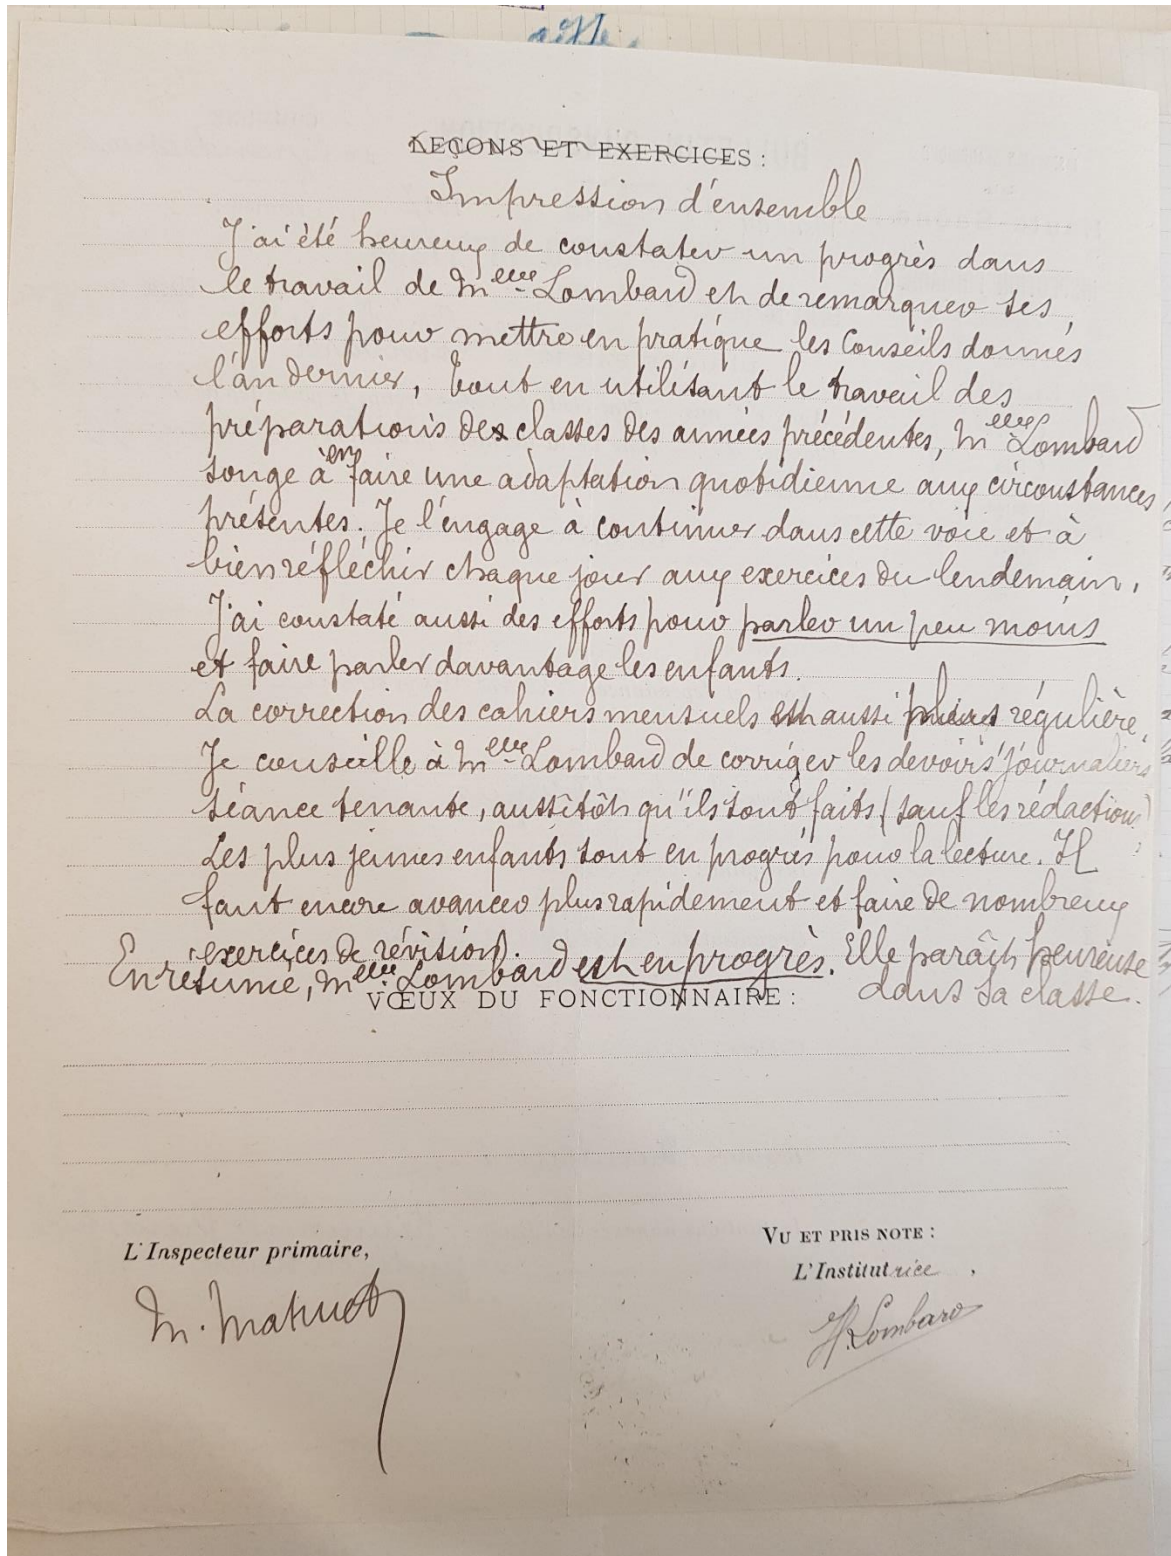 LEÇONS ET EXERCICES :
Impression d'ensemble
J'ai été heureux de constater un progrès dans
le travail de Melle Lombard et de remarquer ses
efforts pour mettre en pratique les Conseils donnés
l'an dernier, tout en utilisant le travail des
préparations des classes des années précédentes, Melle Lombard
songe à en faire une adaptation quotidienne aux circonstances
présentes. Je l'engage à continuer dans cette voie et à
bien réfléchir chaque jour aux exercices du lendemain.
J'ai constaté aussi des efforts pour parler un peu moins
et faire parler davantage les enfants.
La correction des cahiers mensuels est aussi régulière.
Je conseille à Melle Lombard de corriger les devoirs journaliers
séance tenante, aussitôt qu'ils sont faits (sauf les rédactions)
Les plus jeunes enfants sont en progrès pour la lecture. Il
faut encore avancer plus rapidement et faire de nombreux
exercices de révision.
En résumé, Melle Lombard est en progrès. Elle paraît heureuse
dans sa classe.
VŒUX DU FONCTIONNAIRE :
L'Inspecteur primaire,
VU ET PRIS NOTE :
L'Institutrice
H. Lombard